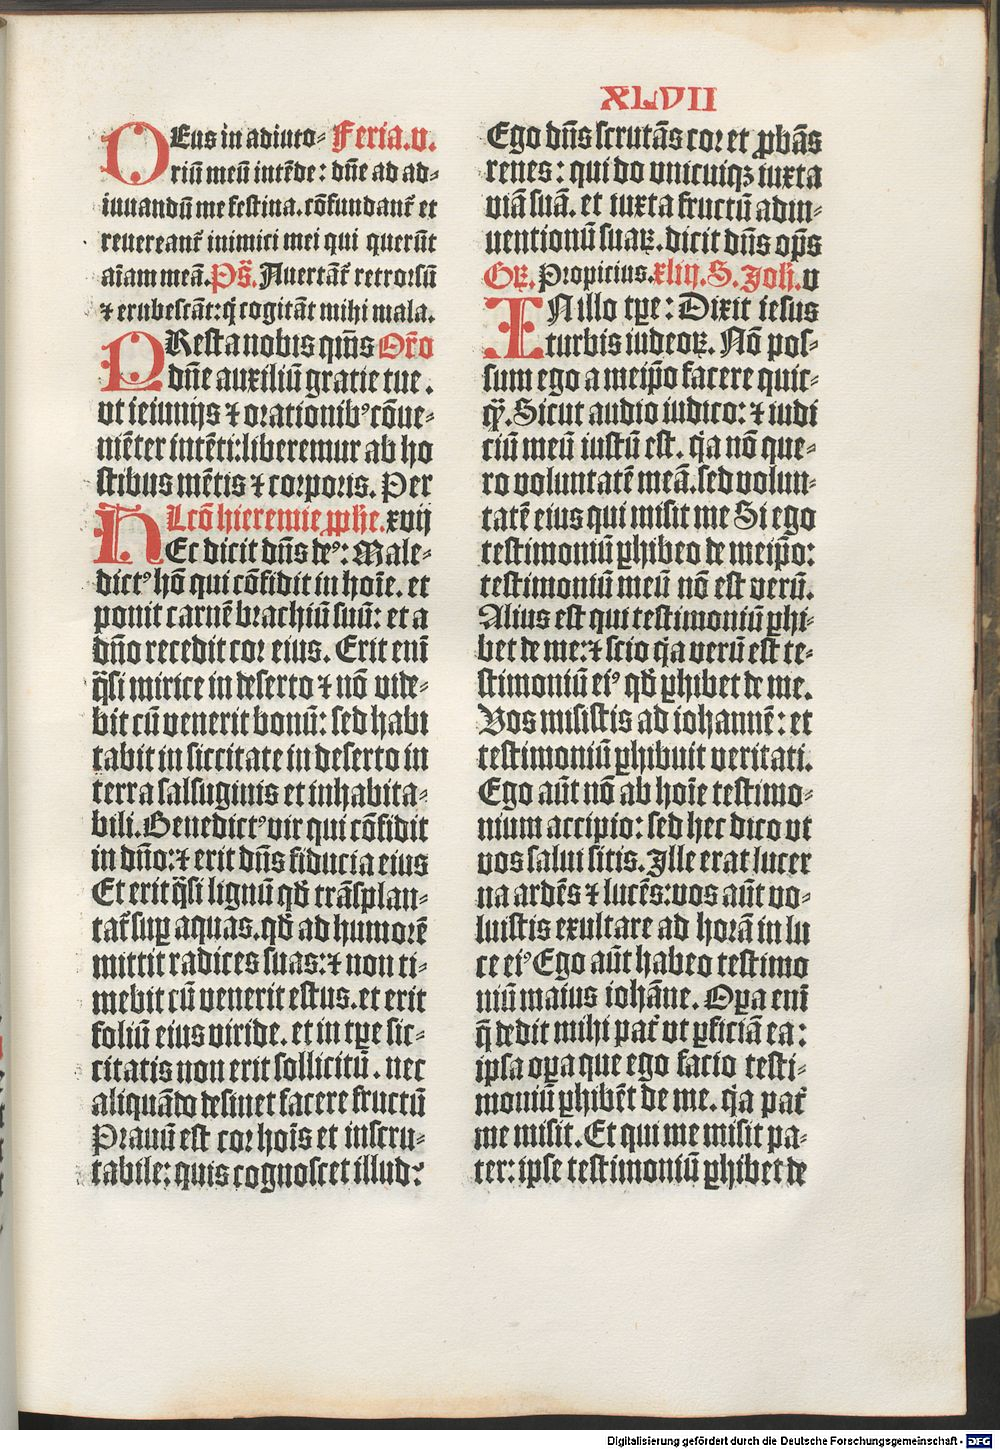 XLVII
DEus in adiuto⸗ Feria.v.
riū meū intēde: dn̄e ad ad⸗
iuuandū me festina. cōfundant᷑ et
reuereant᷑ inimici mei qui querūt
aīam meā. Ps̄. Auertāt᷑ retrorsū
⁊ erubescāt: q̇ cogitāt mihi mala.
PResta nobis qm̄s Orō
dn̄e auxiliū gratie tue.
vt ieiunijs ⁊ orationibꝰ cōue⸗
niēter intēti: liberemur ab ho
stibus mētis ⁊ corporis. Per
Lcō hieremie ꝓphe. xvij
HEc dicit dn̄s deꝰ: Male⸗
dictꝰ hō qui cōfidit in hoīe. et
ponit carnē brachiū suū: et a
dn̄o recedit cor eius. Erit enī
q̄si mirice in deserto ⁊ nō vide⸗
bit cū venerit bonū: sed habi
tabit in siccitate in deserto in
terra salsuginis et inhabita⸗
bili. Benedictꝰ vir qui cōfidit
in dn̄o: ⁊ erit dn̄s fiducia eius
Et erit q̄si lignū qd̄ trāsplan⸗
tat᷑ suꝑ aquas. qd̄ ad humorē
mittit radices suas: ⁊ non ti⸗
mebit cū venerit estus. et erit
foliū eius viride. et in tꝑe sic⸗
citatis non erit sollicitū. nec
aliquādo desinet facere fructū
Prauū est cor hoīs et inscru⸗
tabile: quis cognoscet illud?
Ego dn̄s scrutās cor et ꝓbās
renes: qui do vnicuiqꝫ iuxta
viā suā. et iuxta fructū adin⸗
uentionū suaꝝ. dicit dn̄s op̄s
Gꝝ. Propicius. xliij. S. Joh. v
IN illo tꝑe: Dixit iesus
turbis iudeoꝝ. Nō pos⸗
sum ego a meip̄o facere quic⸗
q̄ȝ. Sicut audio iudico: ⁊ iudi
ciū meū iustū est. q̇a nō que⸗
ro voluntatē meā. sed volun⸗
tatē eius qui misit me Si ego
testimoniū ꝑhibeo de meip̄o:
testimoniū meū nō est verū.
Alius est qui testimoniū ꝑhi⸗
bet de me: ⁊ scio q̇a verū est te⸗
stimoniū eiꝰ qd̄ ꝑhibet de me.
Vos misistis ad iohannē: et
testimoniū ꝑhibuit veritati.
Ego aūt nō ab hoīe testimo⸗
nium accipio: sed hec dico vt
vos salui sitis. Ille erat lucer
na ardēs ⁊ lucēs: vos aūt vo⸗
luistis exultare ad horā in lu
ce eiꝰ Ego aūt habeo testimo
niū maius iohāne. Oꝑa enī
q̄ dedit mihi pat᷑ vt ꝑficiā ea:
ipsa oꝑa que ego facio testi⸗
moniū ꝑhibēt de me. q̇a pat᷑
me misit. Et qui me misit pa⸗
ter: ipse testimoniū ꝑhibet de
Digitalisierung gefördert durch die Deutsche Forschungsgemeinschaft - DFG